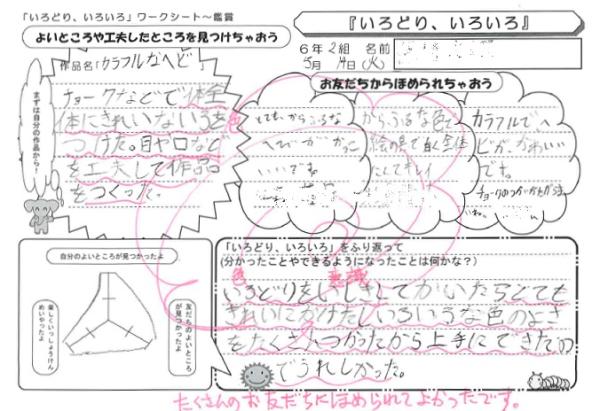 「いろどり、いろいろ」ワークシート～鑑賞
『いろどり、いろいろ』
よいところや工夫したところを見つけちゃおう
6年2組 名前
5月14日(火)
まずは自分の作品から!
作品名「カラフルなへび」
チョークなどで体全
体にきれいないろを
色
つけた。目や口など
を工夫して作品
をつくった。
お友だちからほめられちゃおう
とてもからふるな
へびが かっこ
いいです。
からふるな色と
絵の具で白く全体
にしてキレイ
カラフルで、へ
ビが、かわいい
です。
自分のよいところが見つかったよ
楽しくいっしょうけんめいやったよ
友だちのよいところが見つかったよ
「いろどり、いろいろ」をふり返って
(分かったことやできるようになったことは何かな?)
色 意識
いろどりをいしきしてかいたらとても
きれいにかけたしいろいろな色のよさ
をたくさんつかったから上手にできたの
でうれしかった。
たくさんのお友だちにほめられてよかったです。